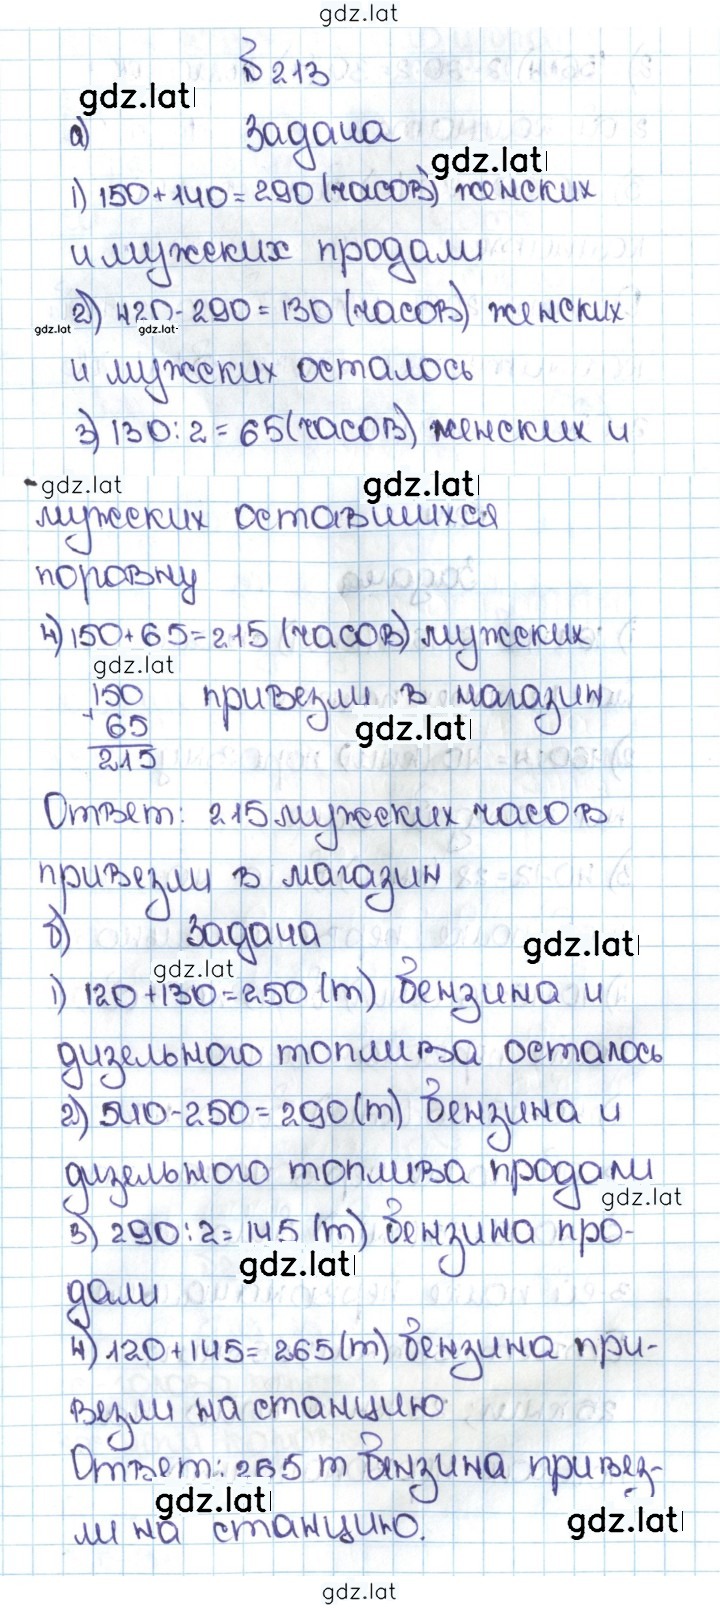 gdz.lat
№ 213
gdz.lat
а) Задача
gdz.lat
1) 150+140=290 (часов) женских
и мужских продали
2) 420-290=130 (часов) женских
gdz.lat gdz.lat
и мужских осталось
3) 130:2=65 (часов) женских и
gdz.lat gdz.lat
мужских оставшихся
поровну
4) 150+65=215 (часов) мужских
gdz.lat
150 привезли в магазин
+ 65
gdz.lat
215
Ответ: 215 мужских часов
привезли в магазин
б) Задача
gdz.lat
gdz.lat
1) 120+130=250 (т) бензина и
дизельного топлива осталось
2) 540-250=290 (т) бензина и
дизельного топлива продали
gdz.lat
3) 290:2=145 (т) бензина про-
gdz.lat
дали
4) 120+145=265 (т) бензина при-
везли на станцию
Ответ: 265 т бензина привез-
gdz.lat
ли на станцию.
gdz.lat
gdz.lat